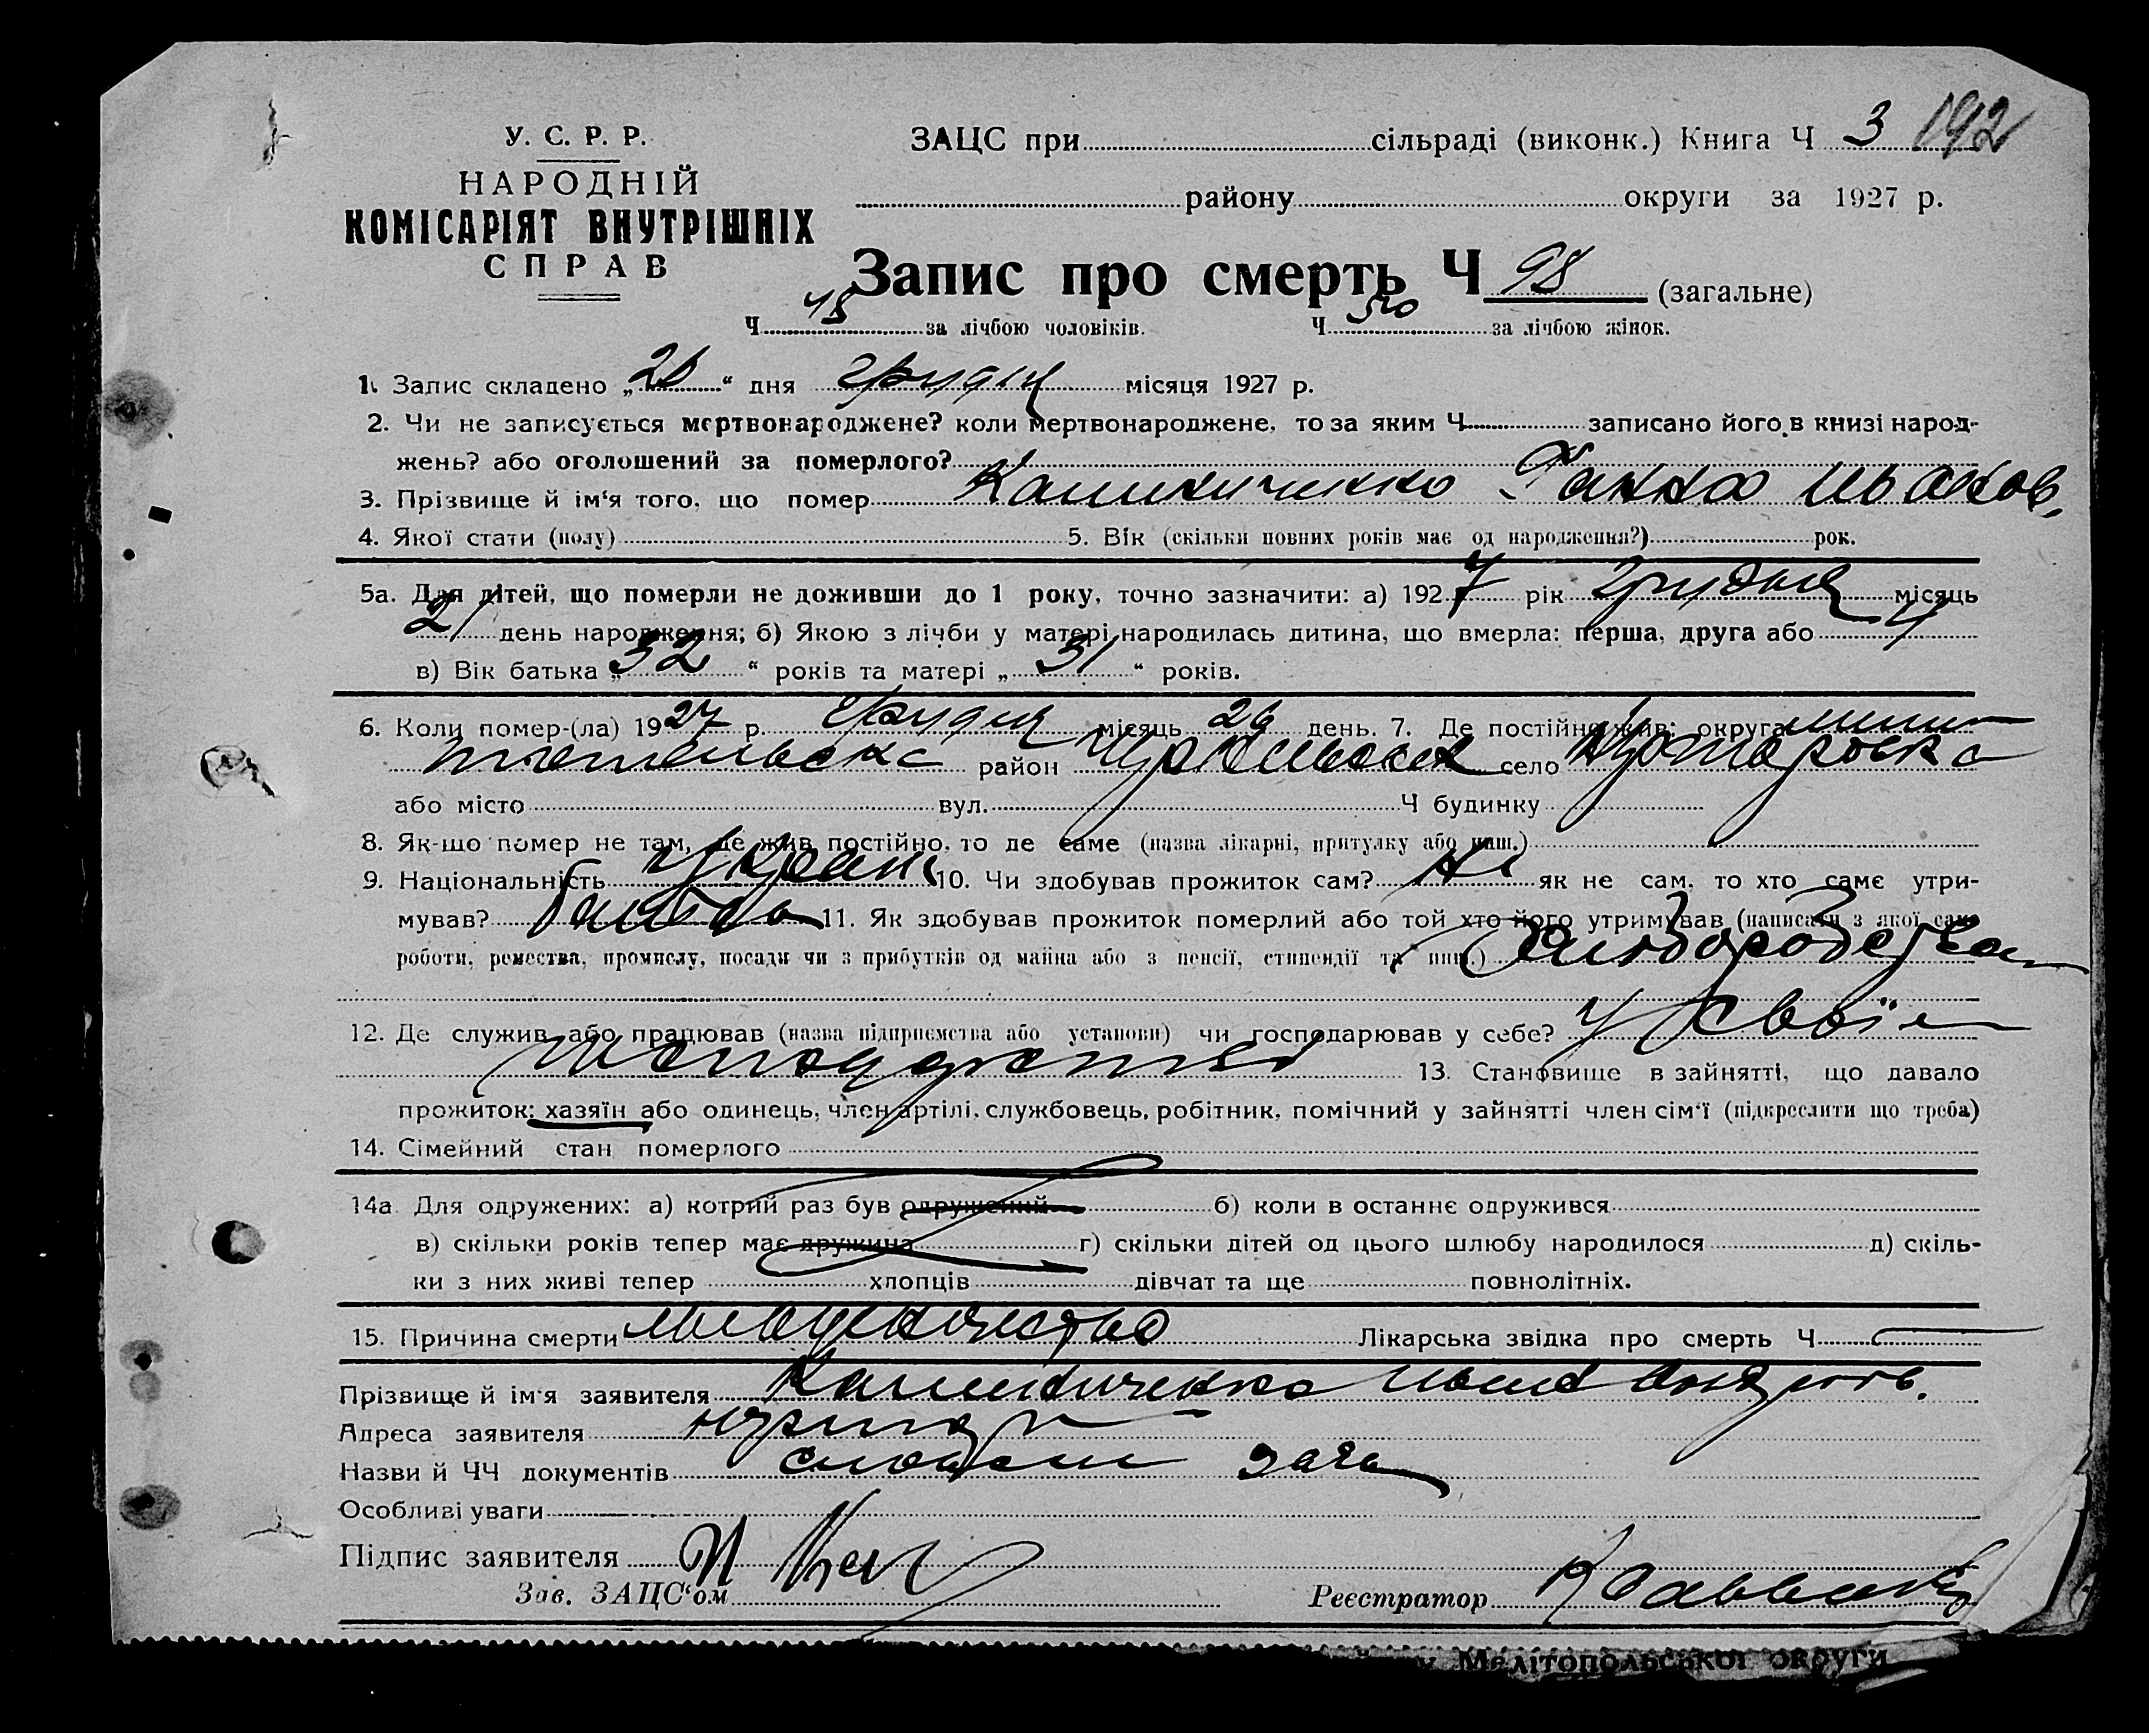 У. С. Р. Р.
НАРОДНІЙ
КОМІСАРІЯТ ВНУТРІШНІХ
СПРАВ
ЗАЦС при сільраді (виконк.) Книга Ч 3 192
району округи за 1927 р.
Запис про смерть Ч 98 (загальне)
Ч 48 за лічбою чоловіків. Ч 50 за лічбою жінок.
1. Запис складено „28“ дня грудня місяця 1927 р.
2. Чи не записується мертвонароджене? коли мертвонароджене, то за яким Ч записано його в книзі народ-
жень? або оголошений за померлого?
3. Прізвище й ім‘я того, що помер Калиниченко Ганна
4. Якої стати (полу) 5. Вік (скільки повних років має од народження?) рок.
5а. Для дітей, що померли не доживши до 1 року, точно зазначити: а) 1927 рік грудня місяць
21 день народження; б) Якою з лічби у матері народилась дитина, що вмерла: перша, друга або 4
в) Вік батька „32“ років та матері „31“ років.
6. Коли помер-(ла) 1927 р. грудня місяць 26 день. 7. Де постійно жив: округа Мелі-
топольска район село
або місто вул. Ч будинку
8. Як-що помер не там, де жив постійно, то де саме (назва лікарні, притулку або инш.)
9. Національність Україн 10. Чи здобував прожиток сам? Ні як не сам, то хто саме утри-
мував? батько 11. Як здобував прожиток померлий або той хто його утримував (написати з якої само
роботи, ремества, промислу, посади чи з прибутків од майна або з пенсії, стипендії та инш.) Хлібородства
12. Де служив або працював (назва підприємства або установи) чи господарював у себе? У своїм
господарстві 13. Становище в зайнятті, що давало
прожиток: хазяїн або одинець, член артілі, службовець, робітник, помічний у зайнятті член сім‘ї (підкреслити що треба)
14. Сімейний стан померлого
14а Для одружених: а) котрий раз був одружений б) коли в останнє одружився
в) скільки років тепер має дружина г) скільки дітей од цього шлюбу народилося д) скіль-
ки з них живі тепер хлопців дівчат та ще повнолітніх.
15. Причина смерти младенчество Лікарська звідка про смерть Ч
Прізвище й ім‘я заявителя Калиниченко
Адреса заявителя
Назви й ЧЧ документів
Особливі уваги
Підпис заявителя
Зав. ЗАЦС‘ом Реєстратор
Мелітопольської округи